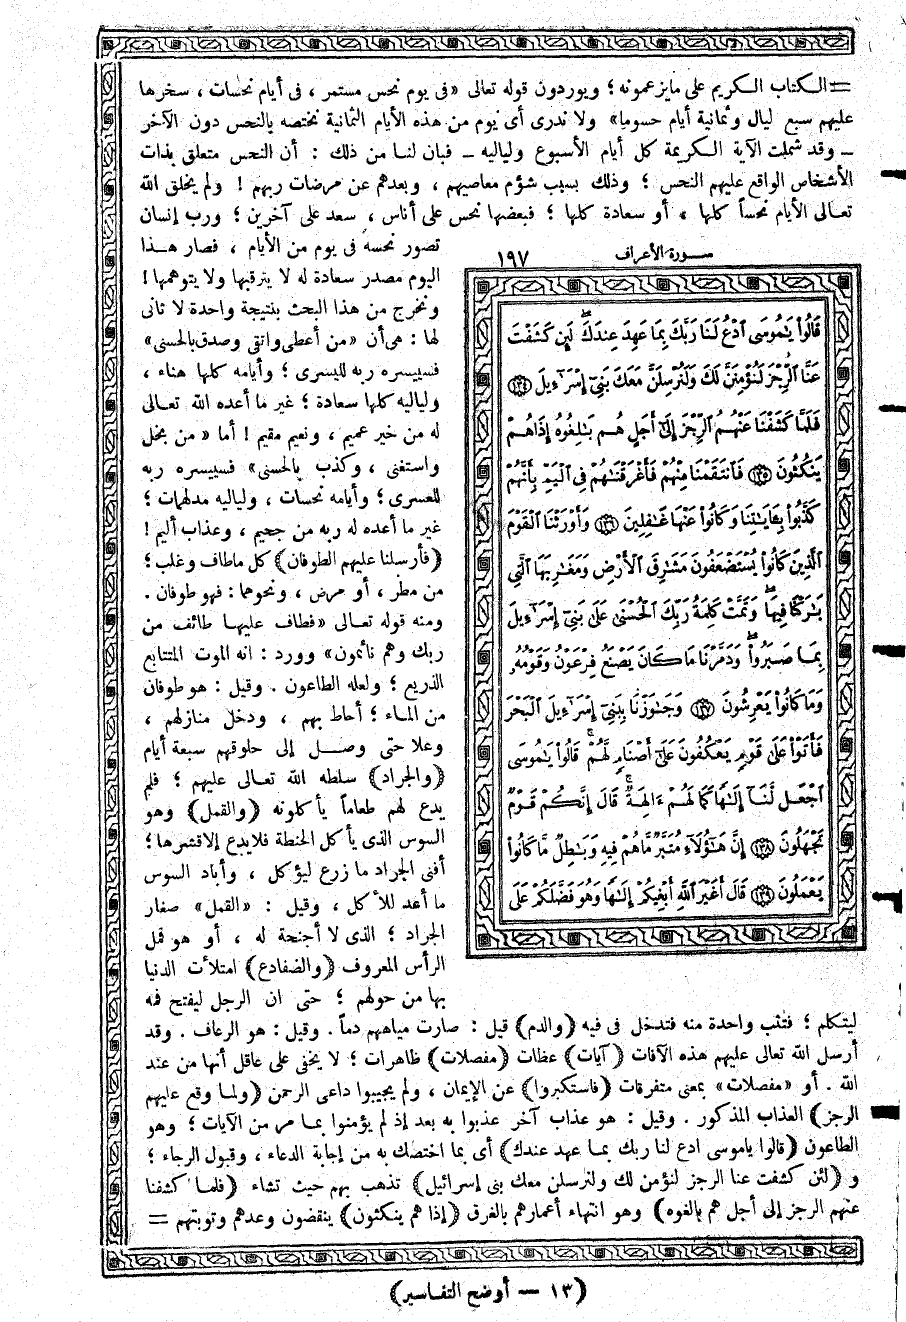 =الكتاب الكريم على مايزعمونه ؛ ويوردون قوله تعالى «فى يوم نحس مستمر ، فى أيام نحسات ، سخرها
عليهم سبع ليال وثمانية أيام حسوما» ولا ندرى أى يوم من هذه الأيام الثمانية نختصه بالنحس دون الآخر
ــ وقد شملت الآية الكريمة كل أيام الأسبوع ولياليه ــ فبان لنا من ذلك : أن النحس متعلق بذات
الأشخاص الواقع عليهم النحس ؛ وذلك بسبب شؤم معاصيهم ، وبعدهم عن مرضات ربهم ! ولم يخلق الله
تعالى الأيام نحساً كلها ، أو سعادة كلها ؛ فبعضها نحس على أناس ، سعد على آخرين ؛ ورب إنسان
تصور نحسه فى يوم من الأيام ، فصار هذا
اليوم مصدر سعادة له لا يترقبها ولا يتوهمها !
ونخرج من هذا البحث بنتيجة واحدة لا ثانى
لها : هى أن «من أعطى واتقى وصدق بالحسنى»
فسييسره ربه لليسرى ؛ وأيامه كلها هناء ،
ولياليه كلها سعادة ؛ غير ما أعده الله تعالى
له من خير عميم ، ونعيم مقيم ! أما «من بخل
واستغنى ، وكذب بالحسنى» فسييسره ربه
للعسرى ؛ وأيامه نحسات ، ولياليه مدلهمات ؛
غير ما أعده له ربه من جحيم ، وعذاب أليم !
(فأرسلنا عليهم الطوفان) كل ماطاف وغلب ؛
من مطر ، أو مرض ، ونحوهما : فهو طوفان .
ومنه قوله تعالى «فطاف عليها طائف من
ربك وهم نائمون» وورد : انه الموت المتتابع
الذريع ؛ ولعله الطاعون . وقيل : هو طوفان
من الماء ؛ أحاط بهم ، ودخل منازلهم ،
وعلا حتى وصل إلى حلوقهم سبعة أيام
(والجراد) سلطه الله تعالى عليهم ؛ فلم
يدع لهم طعاماً يأكلونه (والقمل) وهو
السوس الذى يأكل الحنطة فلا يدع إلا قشرها ؛
أفنى الجراد ما زرع ليؤكل ، وأباد السوس
ما أعد للأكل ، وقيل : «القمل» صغار
الجراد ؛ الذى لا أجنحة له ، أو هو قمل
الرأس المعروف (والضفادع) امتلأت الدنيا
بها من حولهم ؛ حتى ان الرجل ليفتح فمه
سورة الأعراف ١٩٧
قَالُوا۟ يَـٰمُوسَى ٱدْعُ لَنَا رَبَّكَ بِمَا عَهِدَ عِندَكَ ۖ لَئِن كَشَفْتَ
عَنَّا ٱلرِّجْزَ لَنُؤْمِنَنَّ لَكَ وَلَنُرْسِلَنَّ مَعَكَ بَنِىٓ إِسْرَٰٓءِيلَ ﴿١٣٤﴾
فَلَمَّا كَشَفْنَا عَنْهُمُ ٱلرِّجْزَ إِلَىٰٓ أَجَلٍ هُم بَـٰلِغُوهُ إِذَا هُمْ
يَنكُثُونَ ﴿١٣٥﴾ فَٱنتَقَمْنَا مِنْهُمْ فَأَغْرَقْنَـٰهُمْ فِى ٱلْيَمِّ بِأَنَّهُمْ
كَذَّبُوا۟ بِـَٔايَـٰتِنَا وَكَانُوا۟ عَنْهَا غَـٰفِلِينَ ﴿١٣٦﴾ وَأَوْرَثْنَا ٱلْقَوْمَ
ٱلَّذِينَ كَانُوا۟ يُسْتَضْعَفُونَ مَشَـٰرِقَ ٱلْأَرْضِ وَمَغَـٰرِبَهَا ٱلَّتِى
بَـٰرَكْنَا فِيهَا ۖ وَتَمَّتْ كَلِمَتُ رَبِّكَ ٱلْحُسْنَىٰ عَلَىٰ بَنِىٓ إِسْرَٰٓءِيلَ
بِمَا صَبَرُوا۟ ۖ وَدَمَّرْنَا مَا كَانَ يَصْنَعُ فِرْعَوْنُ وَقَوْمُهُۥ
وَمَا كَانُوا۟ يَعْرِشُونَ ﴿١٣٧﴾ وَجَـٰوَزْنَا بِبَنِىٓ إِسْرَٰٓءِيلَ ٱلْبَحْرَ
فَأَتَوْا۟ عَلَىٰ قَوْمٍ يَعْكُفُونَ عَلَىٰٓ أَصْنَامٍ لَّهُمْ ۚ قَالُوا۟ يَـٰمُوسَى
ٱجْعَل لَّنَآ إِلَـٰهًا كَمَا لَهُمْ ءَالِهَةٌ ۚ قَالَ إِنَّكُمْ قَوْمٌ
تَجْهَلُونَ ﴿١٣٨﴾ إِنَّ هَـٰٓؤُلَآءِ مُتَبَّرٌ مَّا هُمْ فِيهِ وَبَـٰطِلٌ مَّا كَانُوا۟
يَعْمَلُونَ ﴿١٣٩﴾ قَالَ أَغَيْرَ ٱللَّهِ أَبْغِيكُمْ إِلَـٰهًا وَهُوَ فَضَّلَكُمْ عَلَى
ليتكلم ؛ فتثب واحدة منه فتدخل فى فيه (والدم) قيل : صارت مياههم دماً . وقيل : هو الرعاف . وقد
أرسل الله تعالى عليهم هذه الآفات (آيات) عظات (مفصلات) ظاهرات ؛ لا يخفى على عاقل أنها من عند
الله . أو «مفصلات» بمعنى متفرقات (فاستكبروا) عن الإيمان ، ولم يجيبوا داعى الرحمن (ولما وقع عليهم
الرجز) العذاب المذكور . وقيل : هو عذاب آخر عذبوا به بعد إذ لم يؤمنوا بما مر من الآيات ؛ وهو
الطاعون (قالوا ياموسى ادع لنا ربك بما عهد عندك) أى بما اختصك به من إجابة الدعاء ، وقبول الرجاء ؛
و (لئن كشفت عنا الرجز لنؤمن لك ولنرسلن معك بنى إسرائيل) تذهب بهم حيث تشاء (فلما كشفنا
عنهم الرجز إلى أجل هم بالغوه) وهو انتهاء أعمارهم بالغرق (إذا هم ينكثون) ينقضون وعدهم وتوبتهم =
(١٣ — أوضح التفاسير)